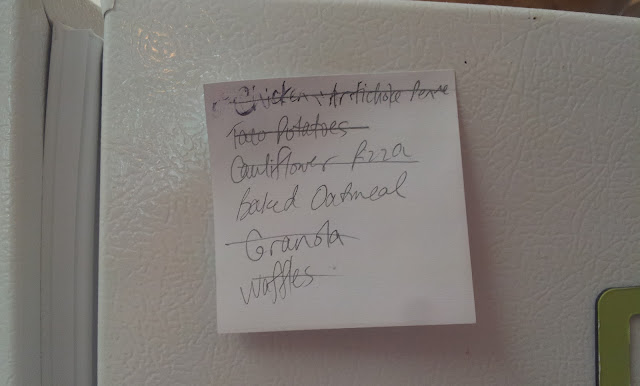 Chicken & Artichoke Penne
Taco Potatoes
Cauliflower Pizza
Baked Oatmeal
Granola
Waffles